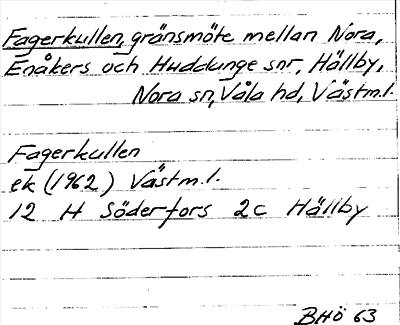 Fagerkullen, gränsmöte mellan Nora,
Enåkers och Huddunge snr, Hällby,
Nora sn, Våla hd, Västm.l.
Fagerkullen
ek (1962) Västm.l.
12 H Söderfors 2c Hällby
BHö 63